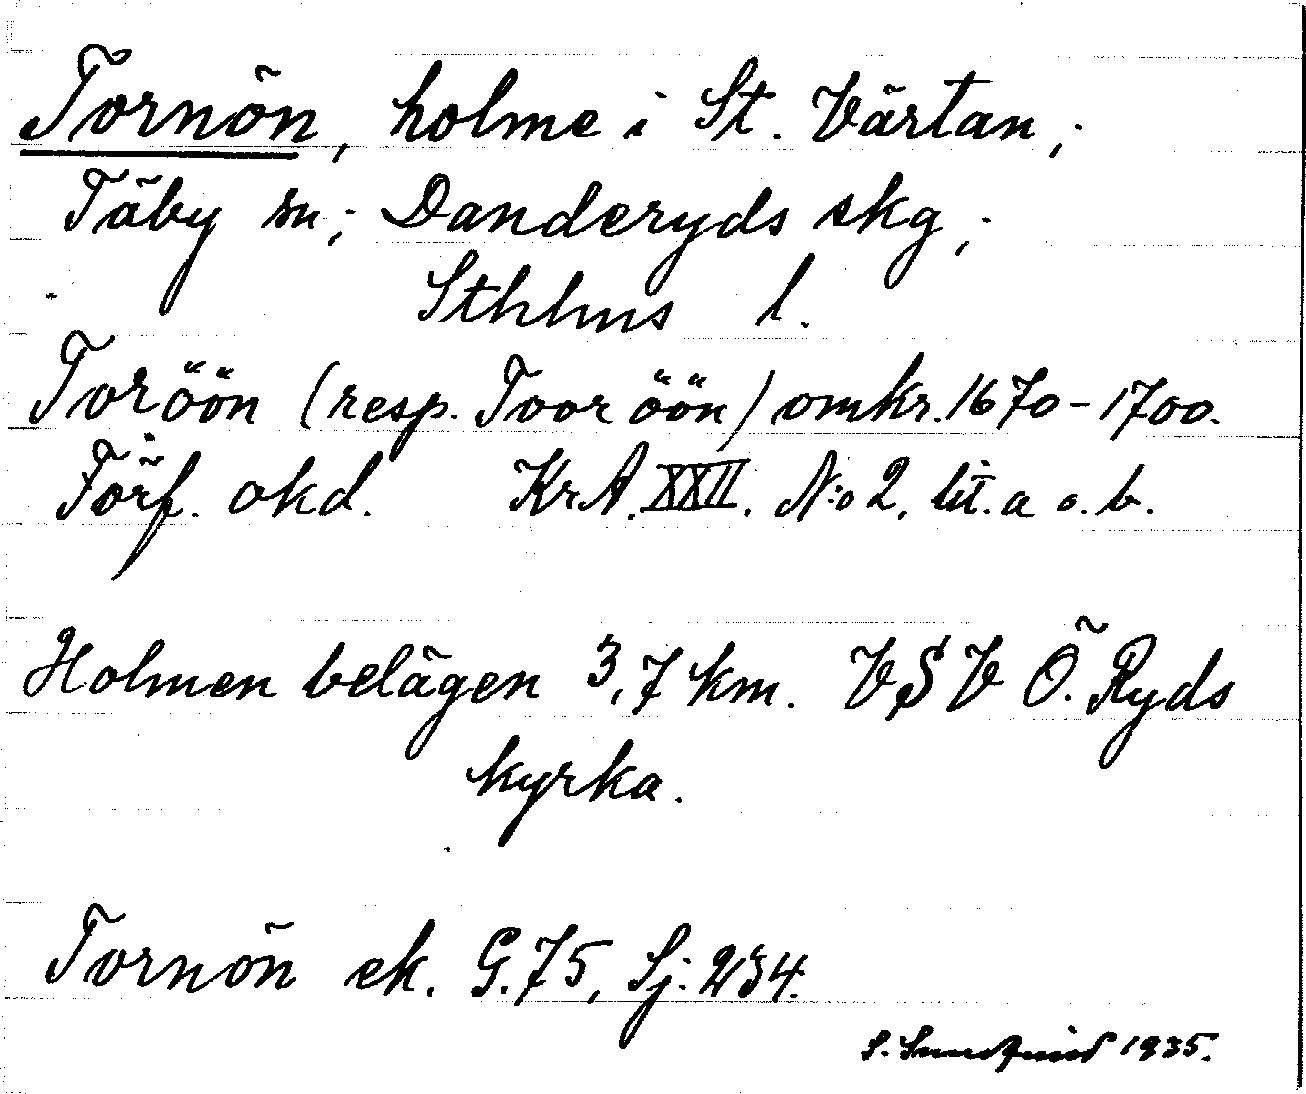 Tornön, holme i St. Värtan,;
Täby sn,; Danderyds skg,;
Sthlms l.
Toröön (resp. Tooröön) omkr. 1670-1700.
Förf. okd. KrA. XXII. N:o 2. lit. a o. b.
Holmen belägen 3,7 km. VSV Ö. Ryds
kyrka.
Tornön ek. G.75, Sj: 234.
S. Sundquist 1935.